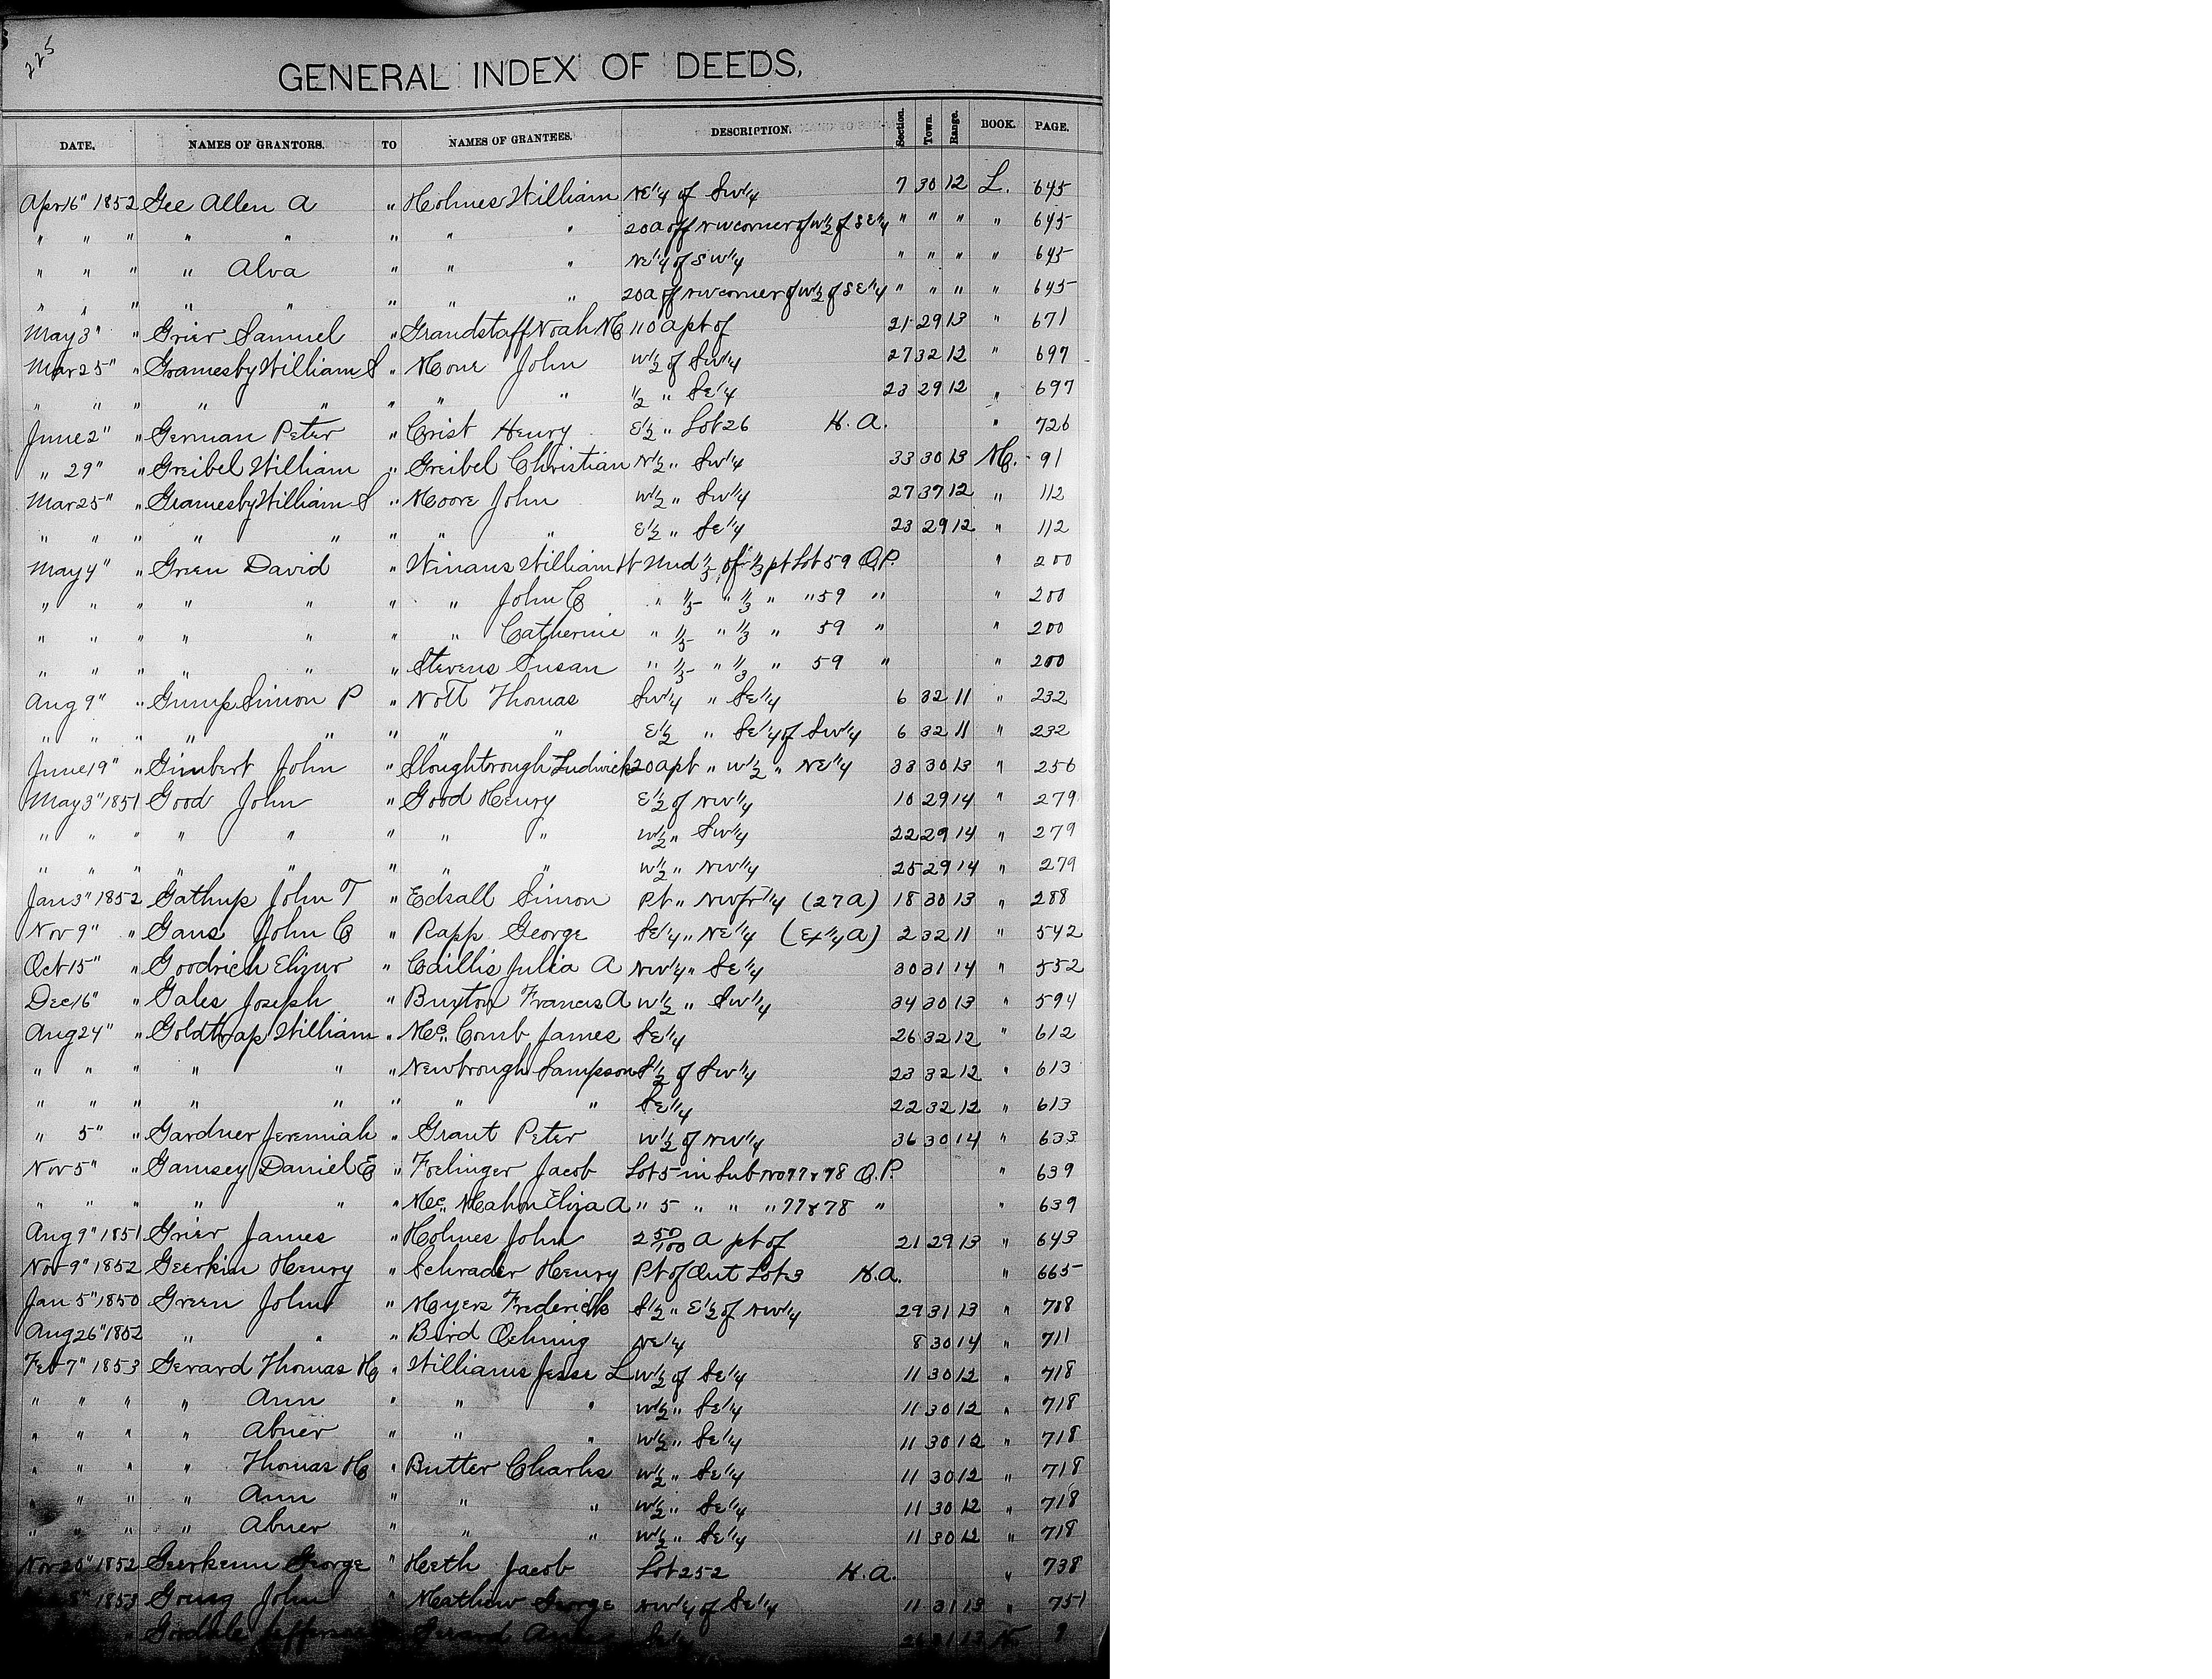 225
GENERAL INDEX OF DEEDS,
DATE. NAMES OF GRANTORS. TO NAMES OF GRANTEES. DESCRIPTION. Section. Town. Range. BOOK. PAGE.
Apr 16" 1852 Gee Allen A " Holmes William NE 1/4 of Sw 1/4 7 30 12 L. 645
" " " " " " " " 20a off NW corner of W 1/2 of SE 1/4 " " " " 645
" " " " Alva " " " NE 1/4 of SW 1/4 " " " " 645
" " " " " " " " 20a of NW corner of W 1/2 of SE 1/4 " " " " 645
May 3" " Grier Samuel " Grandstaff Noah M 110 a pt of 21 29 13 " 671
Mar 25" " Gramesby William S " Mone John W 1/2 of Sw 1/4 27 32 12 " 697
" " " " " " " " 1/2 " Se 1/4 23 29 12 " 697
June 2" " German Peter " Crist Henry E 1/2 " Lot 26 H. A. " 726
" 29" " Greibel William " Greibel Christian N 1/2 " Sw 1/4 33 30 13 M. 91
Mar 25" " Gramesby William S " Moore John W 1/2 " Sw 1/4 27 37 12 " 112
" " " " " " " " E 1/2 " Se 1/4 23 29 12 " 112
May 4" " Green David " Winans William H Und 1/5 of 1/3 pt Lot 59 O.P. " 200
" " " " " " " John C " 1/5 " 1/3 " " 59 " " 200
" " " " " " " Catherine " 1/5 " 1/3 " 59 " " 200
" " " " " " Stevens Susan " 1/5 " 1/3 " 59 " " 200
Aug 9" " Gump Simon P " Nott Thomas Sw 1/4 " Se 1/4 6 32 11 " 232
" " " " " " " " E 1/2 " Se 1/4 of Sw 1/4 6 32 11 " 232
June 19" " Gimbert John " Sloughbrough Ludwick 20 a pt " W 1/2 " NE 1/4 33 30 13 " 256
May 3" 1851 Good John " Good Henry E 1/2 of NW 1/4 10 29 14 " 279
" " " " " " " " W 1/2 " Sw 1/4 22 29 14 " 279
" " " " " " " W 1/2 " NW 1/4 25 29 14 279
Jan 3" 1852 Gathup John T " Edsall Simon Pt " NW fr 1/4 (27 A) 18 30 13 " 288
Nov 9" " Gans John C " Rapp George Se 1/4 " NE 1/4 (Ex 1/4 A) 2 32 11 " 542
Oct 15" " Goodrich Elizur " Caillis Julia A NW 1/4 " SE 1/4 30 31 14 " 552
Dec 16" " Gales Joseph " Buxton Francis A W 1/2 " Sw 1/4 34 30 13 " 594
Aug 24" " Goldtrap William " Mc Comb James Se 1/4 26 32 12 " 612
" " " " " " Newbrough Sampson S 1/2 of Sw 1/4 23 32 12 " 613
" " " " " " " " Se 1/4 22 32 12 " 613
" 5" " Gardner Jeremiah " Grant Peter W 1/2 of NW 1/4 36 30 14 " 633
Nov 5" " Gamsey Daniel E " Foelinger Jacob Lot 5 in Sub No 77 & 78 O.P. " 639
" " " " " " Mc Mahon Eliza A " 5 " " " 77 & 78 " " 639
Aug 9" 1851 Grier James " Holmes John 2 50/100 A pt of 21 29 13 " 643
Nov 9" 1852 Geerkin Henry " Schrader Henry Pt of Out Lot 3 H.A. " 665
Jan 5" 1850 Green John " Myers Frederick S 1/2 " E 1/2 of NW 1/4 29 31 13 " 708
Aug 26" 1852 " " " Bird Ochmig NE 1/4 8 30 14 " 711
Feb 7" 1853 Gerard Thomas H " Williams Jesse L W 1/2 of Se 1/4 11 30 12 " 718
" " " " Ann " " " W 1/2 " Se 1/4 11 30 12 " 718
" " " " Abner " " " W 1/2 " Se 1/4 11 30 12 " 718
" " " " Thomas H " Butter Charles W 1/2 " Se 1/4 11 30 12 " 718
" " " " Ann " " " W 1/2 " Se 1/4 11 30 12 " 718
" " " " Abner " " " W 1/2 " Se 1/4 11 30 12 " 718
Nov 20" 1852 Geerkenn George " Heth Jacob Lot 252 H.A. " 738
8" 1853 Gouig John " Mathew George NW 1/4 of Se 1/4 11 31 13 " 751
" Gerard 31 13 N. 9